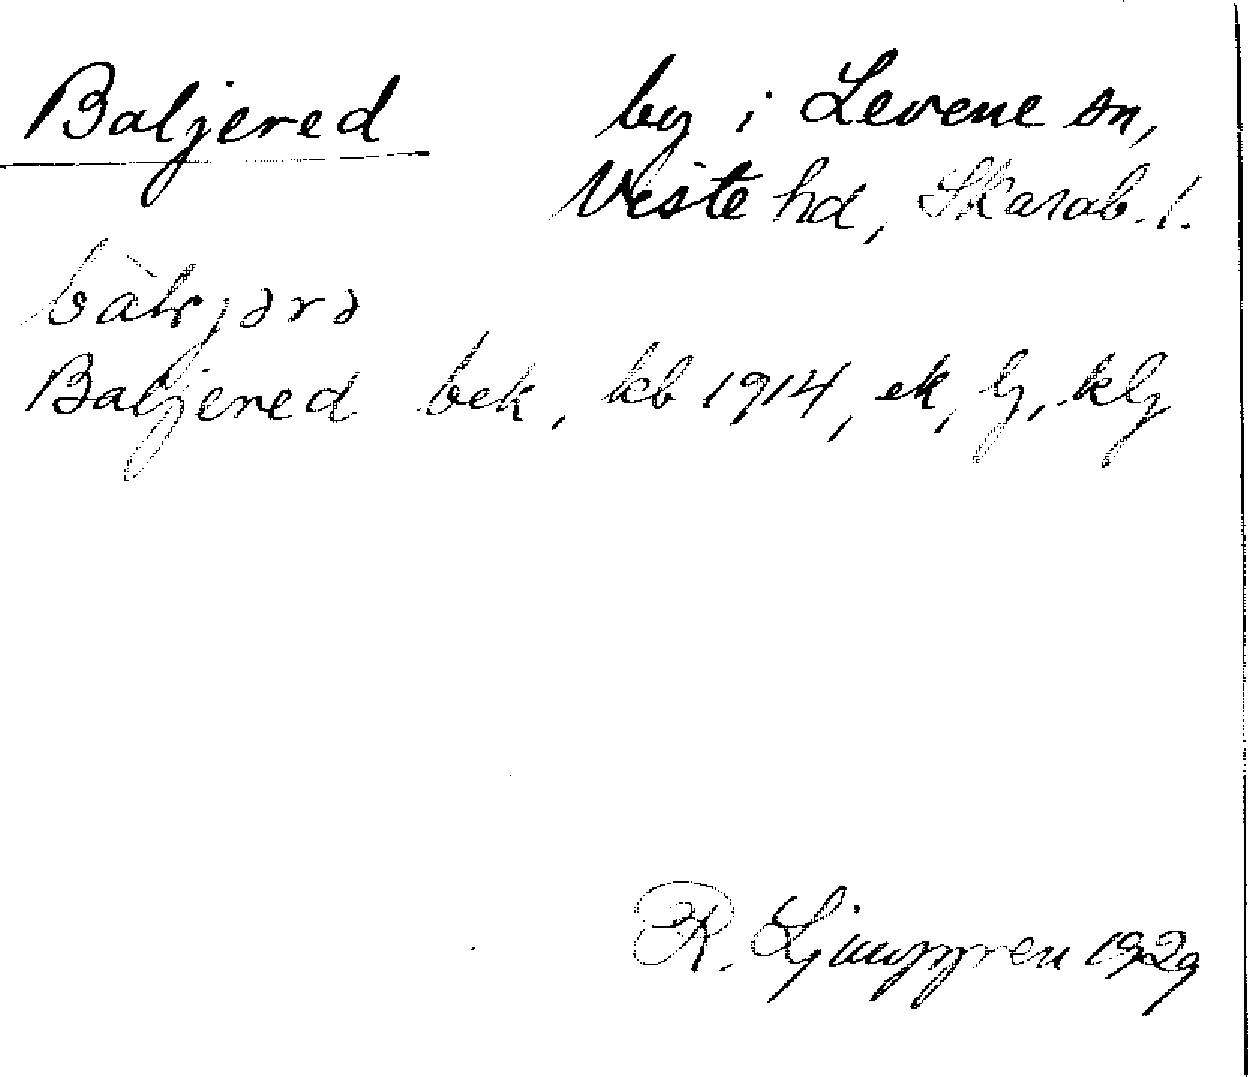 Baljered by i Levene sn,
Viste hd, Skarab. l.
Baljered bek, kb 1914, ek, lj, klj
R. Ljunggren 1929